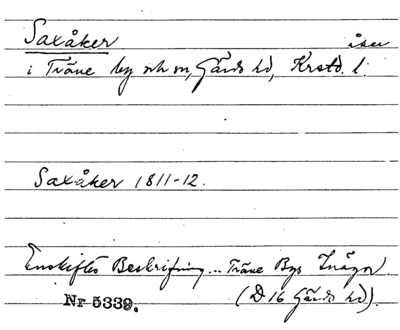 Saxåker åker
i Träne by och sn, Gärds hd, Krstd. l.
Saxåker 1811-12.
Enskiftes Beskrifning... Träne Bys Inägor
Nr 5339. (D 16 Gärds hd).